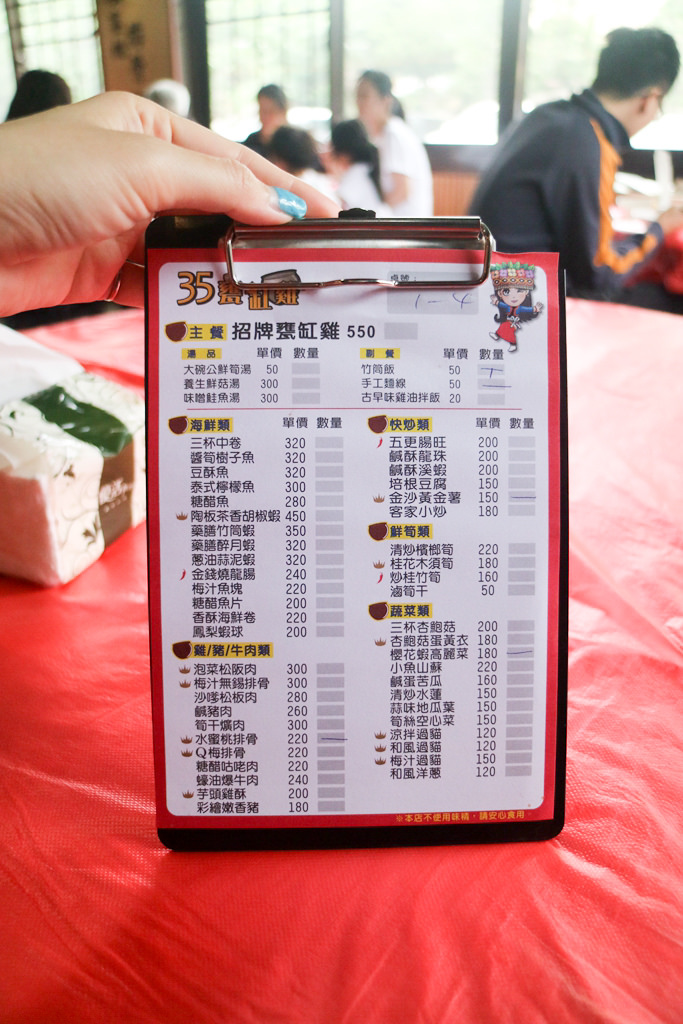 35甕缸雞
桌號：
1-4
主餐 招牌甕缸雞 550
湯品 單價 數量
大碗公鮮筍湯 50
養生鮮菇湯 300
味噌鮭魚湯 300
副餐 單價 數量
竹筒飯 50 一
手工麵線 50 一
古早味雞油拌飯 20
海鮮類 單價 數量
三杯中卷 320
醬筍樹子魚 320
豆酥魚 320
泰式檸檬魚 300
糖醋魚 280
陶板茶香胡椒蝦 450
藥膳竹筒蝦 350
藥膳醉月蝦 320
蔥油蒜泥蝦 320
金錢燒龍腸 240
梅汁魚塊 220
糖醋魚片 200
香酥海鮮卷 220
鳳梨蝦球 200
雞/豬/牛肉類
泡菜松阪肉 300
梅汁無錫排骨 300
沙嗲松板肉 280
鹹豬肉 260
筍干爌肉 300
水蜜桃排骨 220 一
Q梅排骨 220
糖醋咕咾肉 220
蠔油爆牛肉 240
芋頭雞酥 200
彩繪嫩香豬 180
快炒類 單價 數量
五更腸旺 200
鹹酥龍珠 200
鹹酥溪蝦 200
培根豆腐 150
金沙黃金薯 150 一
客家小炒 180
鮮筍類
清炒檳榔筍 220
桂花木須筍 180
炒桂竹筍 160
滷筍干 50
蔬菜類
三杯杏鮑菇 200
杏鮑菇蛋黃衣 180
櫻花蝦高麗菜 180 一
小魚山蘇 220
鹹蛋苦瓜 160
清炒水蓮 150
蒜味地瓜葉 150
筍絲空心菜 150
涼拌過貓 120
和風過貓 120
梅汁過貓 150
和風洋蔥 120
※本店不使用味精，請安心食用。